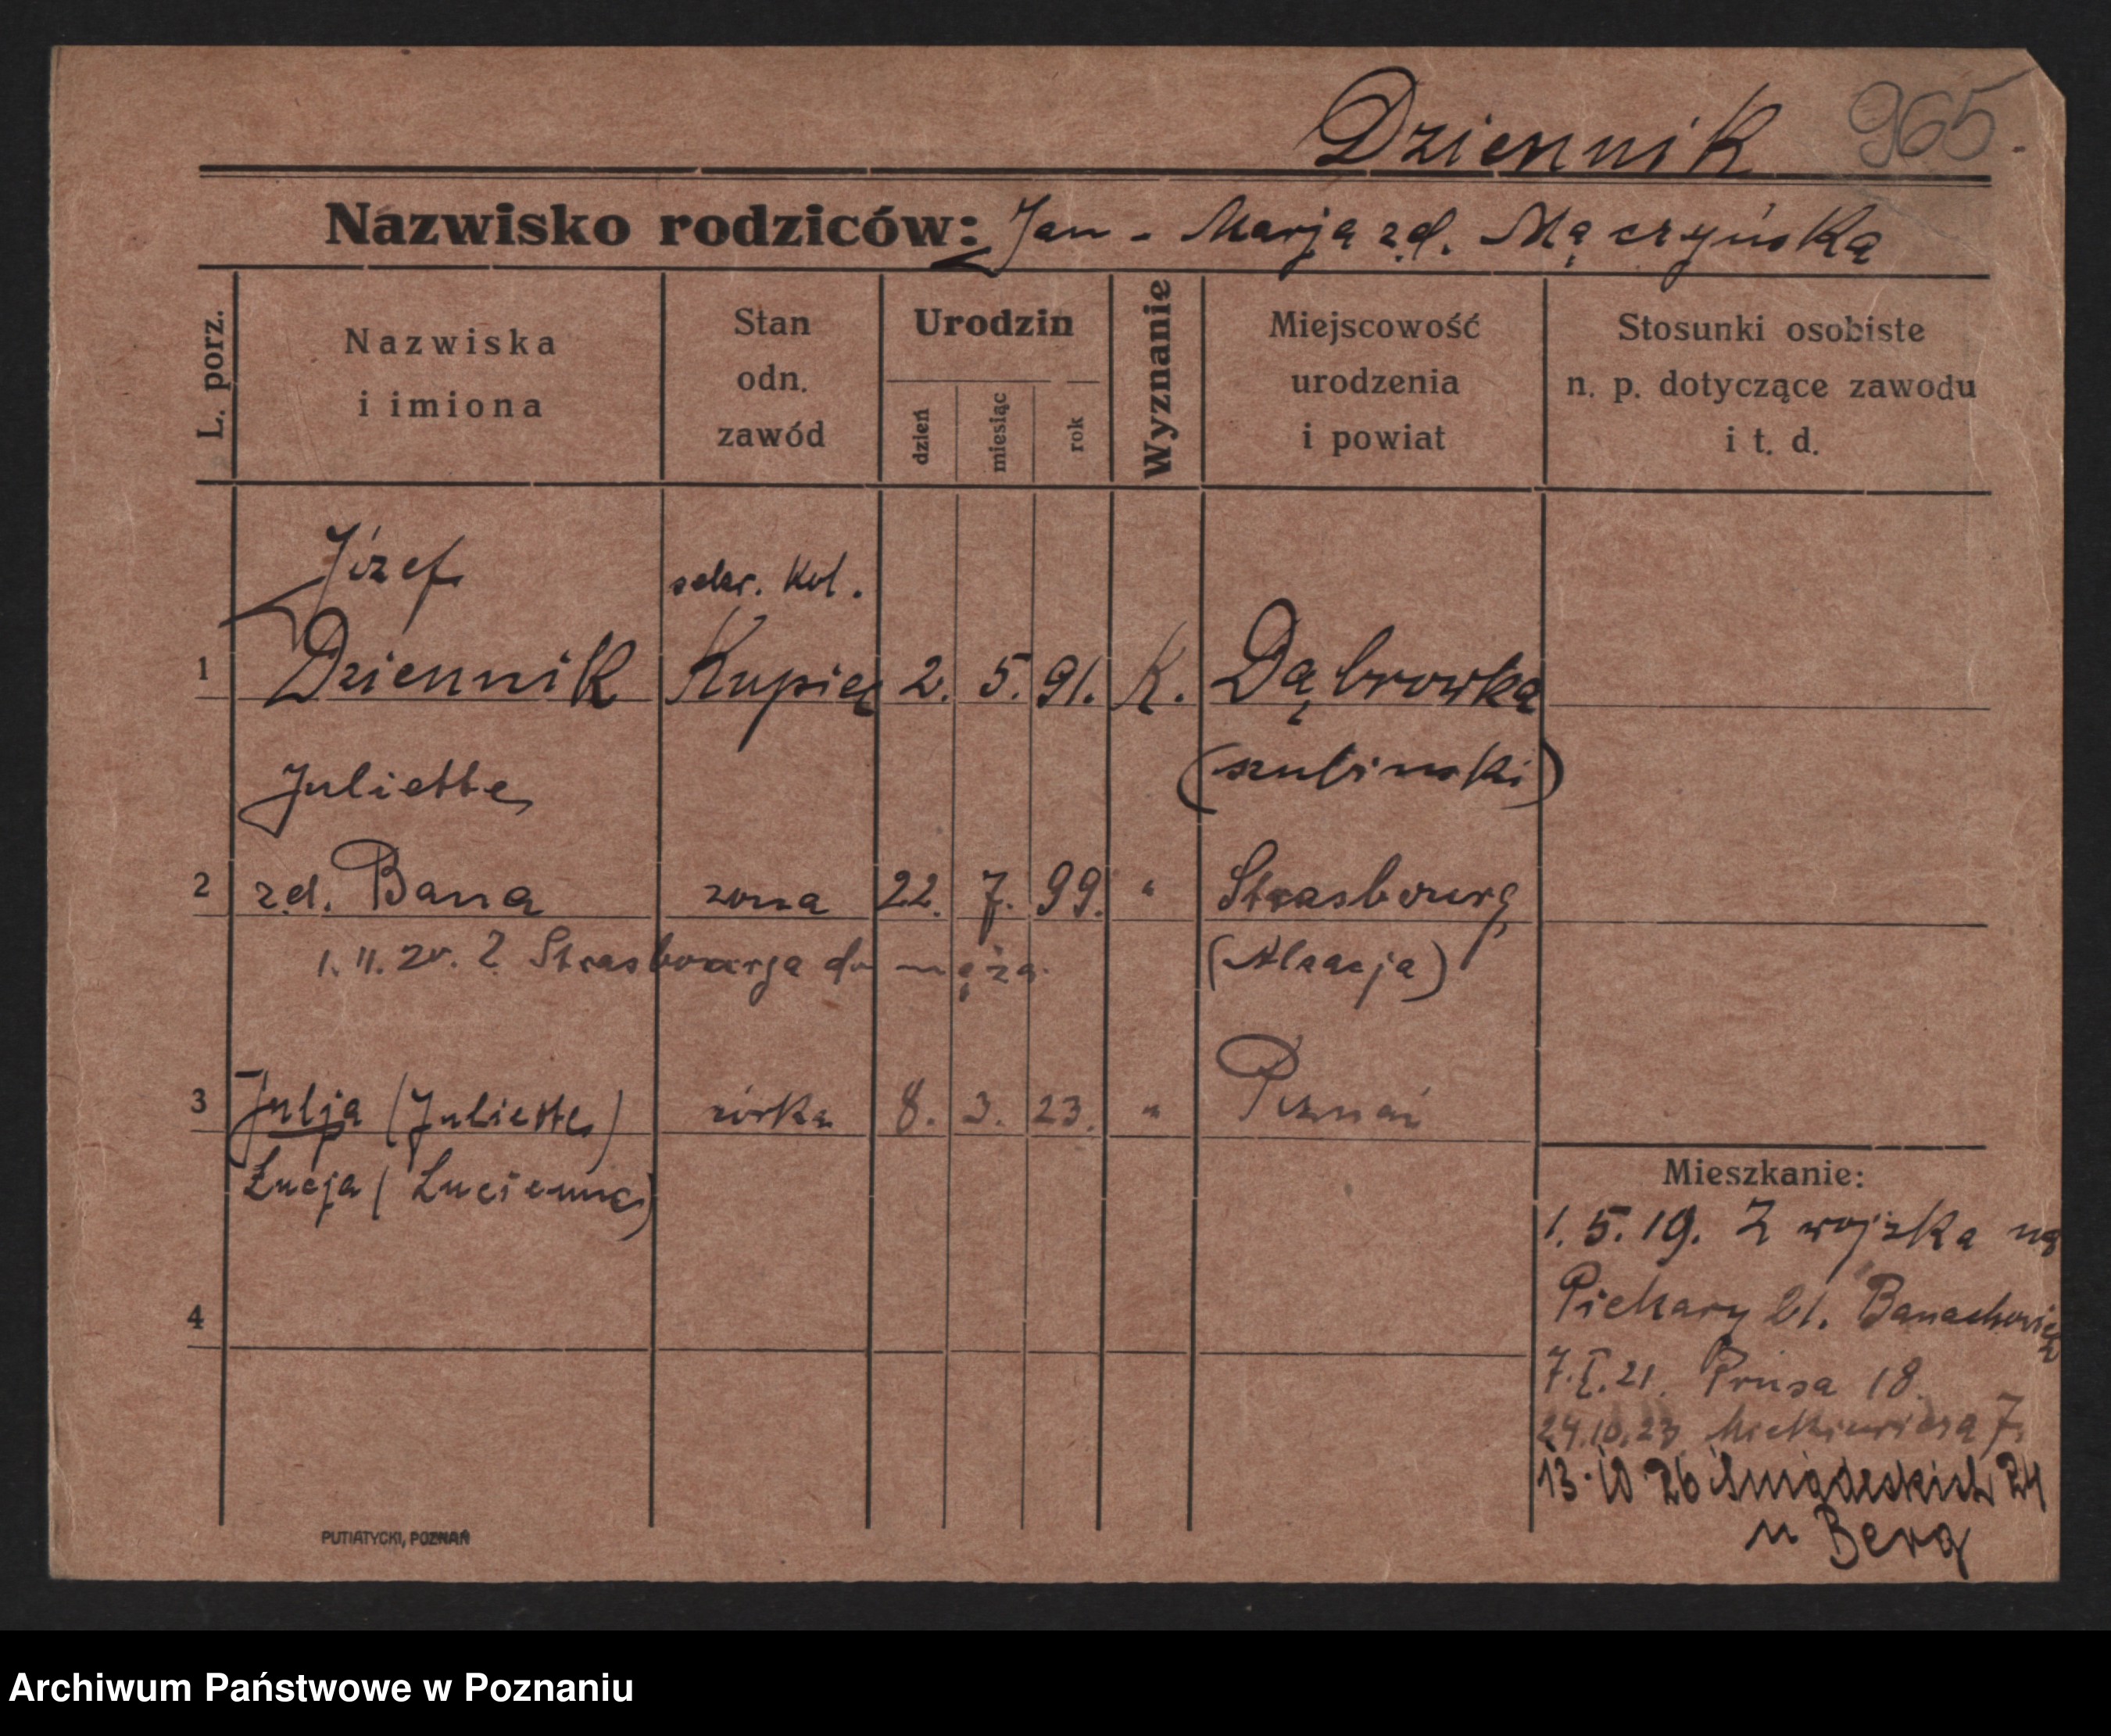 Dziennik 965.
Nazwisko rodziców: Jan - Marja zd. Mączyńska
L. porz.
Nazwiska
i imiona
Stan
odn.
zawód
Urodzin
dzień
miesiąc
rok
Wyznanie
Miejscowość
urodzenia
i powiat
Stosunki osobiste
n. p. dotyczące zawodu
i t. d.
Józef sekr. kol.
1 Dziennik Kupiec 2. 5. 91. K. Dąbrowka
Juliette (szubinski)
2 zd. Bana żona 22. 7. 99. " Strasbourg
1. 11. 20. Z Strasbourga do męża. (Alzacja)
3 Julja (Juliette) córka 8. 3. 23. " Poznań
Łucja (Lucienne)
4
Mieszkanie:
1. 5. 19. Z wojska na
Piekary 21. Banachowicz
7. I. 21. Prusa 18.
24.10.23. Mickiewicza 7.
13.10.26 Śniadeckich 24
u Berg
PUTIATYCKI, POZNAŃ
Archiwum Państwowe w Poznaniu